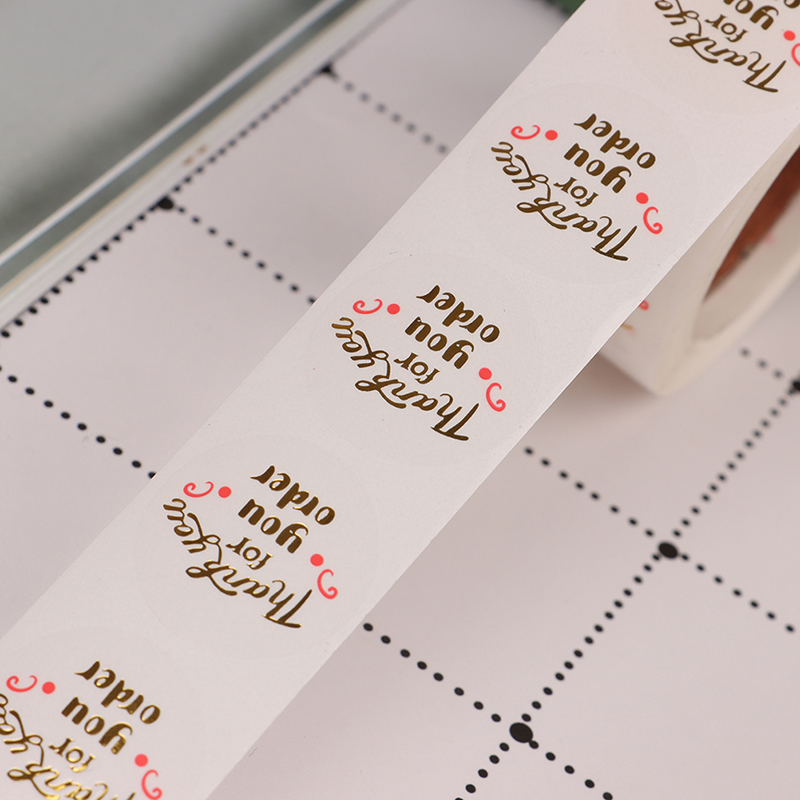 Thank
for
you
Thank you
for
you
order
Thank you
for
you
order
Thank you
for
you
order
Thank you
for
you
order